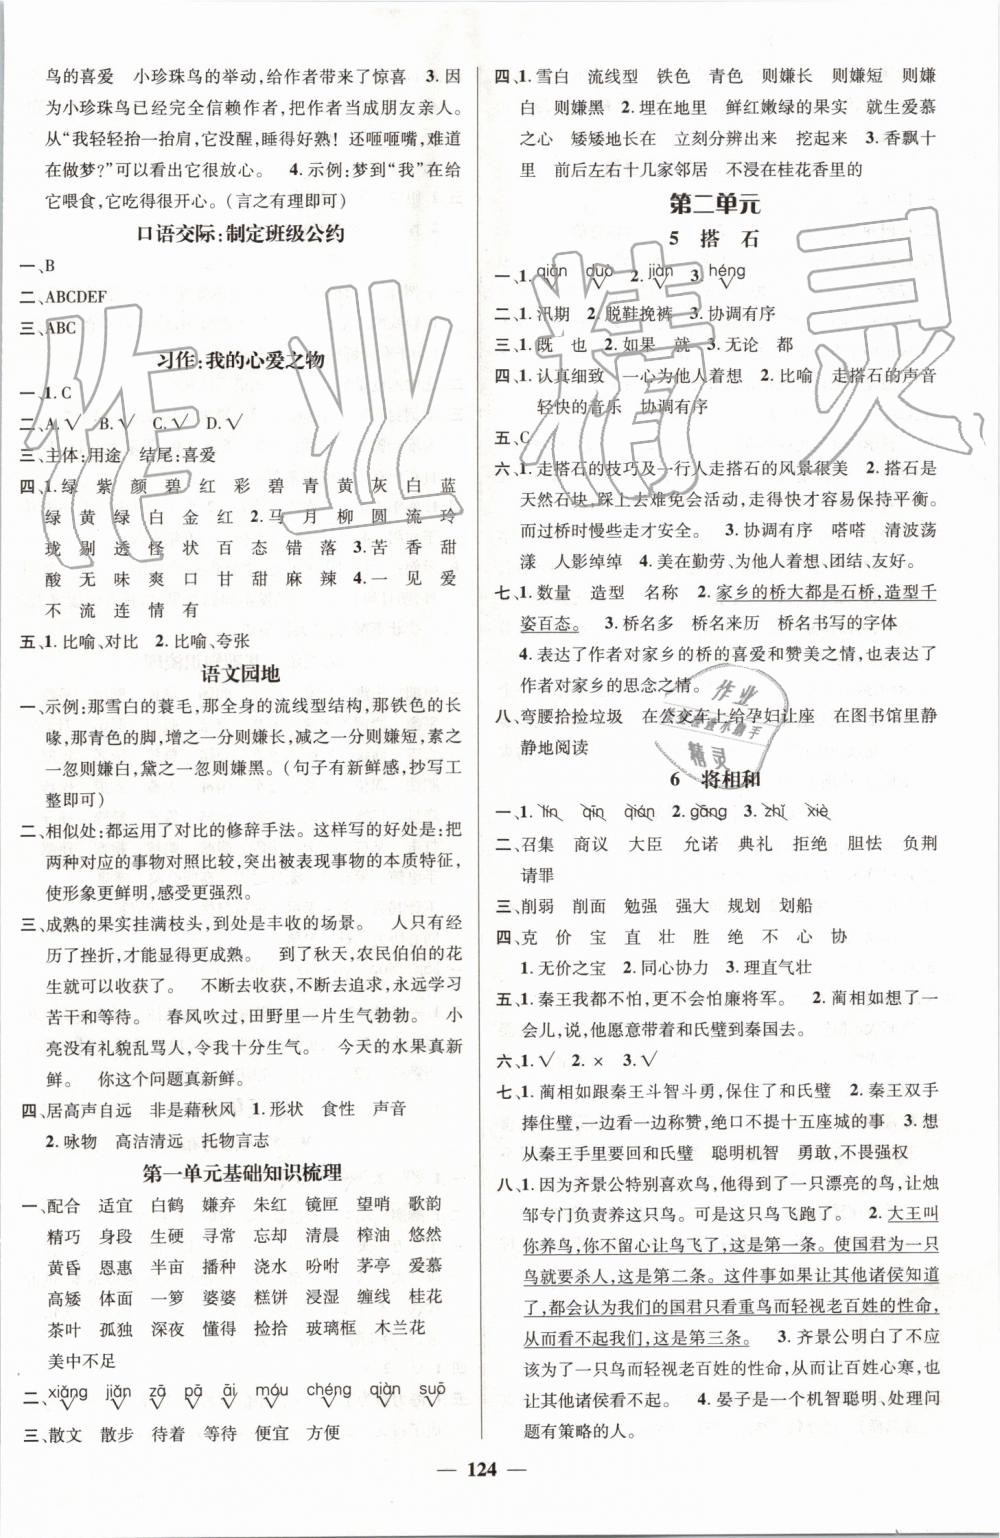 鸟的喜爱 小珍珠鸟的举动,给作者带来了惊喜 3.因
为小珍珠鸟已经完全信赖作者,把作者当成朋友亲人。
从“我轻轻抬一抬肩,它没醒,睡得好熟!还咂咂嘴,难道
在做梦?”可以看出。 4.示例:梦到“我”在给
它喂食,它吃得很开心。(言之有理即可)
口语交际:制定班级公约
一、B
二、ABCDEF
三、ABC
习作:我的心爱之物
一、1.C
二、A.√ B.√ C.√ D.√
三、主体:用途 结尾:喜爱
四、1.绿 紫 颜 碧 红 彩 碧 青 黄 灰 白 蓝
绿 黄 绿 白 金 红 2.马 月 柳 圆 流 玲
珑 剔 透 怪 状 百 态 错 落 3.苦 香 甜
酸 无 味 爽 口 甘 甜 麻 辣 4.一 见 爱
不 流 连 情 有
五、1.比喻、对比 2.比喻、夸张
语文园地
一、示例:那雪白的蓑毛,那全身的流线型结构,那铁色的长
喙,那青色的脚,增之一分则嫌长,减之一分则嫌短,素之
一忽则嫌白,黛之一忽则嫌黑。(句子有新鲜感,抄写工
整即可)
二、相似处:都运用了对比的修辞手法。这样写的好处是:把
两种对应的事物对照比较,突出被表现事物的本质特征,
使形象更鲜明,感受更强烈。
三、成熟的果实挂满枝头,到处是丰收的场景。 人只有经
历了挫折,才会变得更成熟。 到了秋天,农民伯伯的花
生就可以收获了。 不断去收获,不断去追求,永远学习
苦干和等待。 春风吹过,田野里一片生气勃勃。 小
亮没有礼貌乱骂人,令我十分生气。 今天的水果真新
鲜。 你这个问题真新鲜。
四、居高声自远 非是藉秋风 1.形状 食性 声音
2.咏物 高洁清远 托物言志
第一单元基础知识梳理
一、配合 适宜 白鹤 嫌弃 朱红 镜匣 望哨 歌韵
精巧 身段 生硬 寻常 忘却 清晨 榨油 悠然
黄昏 恩惠 半亩 播种 浇水 吩咐 茅亭 爱慕
高矮 体面 一箩 婆婆 糕饼 浸湿 缠线 桂花
茶叶 孤独 深夜 懂得 捡拾 玻璃框 木兰花
美中不足
二、xiāng jiān zā pā āi móu chéng qiàn suō
三、散文 散步 待着 等待 便宜 方便
四、1.雪白 流线型 铁色 青色 则嫌长 则嫌短 则嫌
白 则嫌黑 2.埋在地里 鲜红嫩绿的果实 就生爱慕
之心 矮矮地长在 立刻分辨出来 挖起来 3.香飘十
里 前后左右十几家邻居 不浸在桂花香里的
第二单元
5 搭石
一、1.qiān duō 2.jiàn 3.héng
二、1.汛期 2.脱鞋挽裤 3.协调有序
三、1.既 也 2.如果 就 3.无论 都
四、1.认真细致 一心为他人着想 2.比喻 走搭石的声音
轻快的音乐 协调有序
五、C
六、1.走搭石的技巧及一行人走搭石的风景很美 2.搭石是
天然石块,踩上去难免会活动,走得快才容易保持平衡。
而过桥时慢些走才安全。 3.协调有序 嗒嗒 清波荡
漾 人影绰绰 4.美在勤劳、为他人着想、团结、友好。
七、1.数量 造型 名称 2.家乡的桥大都是石桥,造型千
姿百态。 3.桥名多 桥名来历 桥名书写的字体
4.表达了作者对家乡的桥的喜爱和赞美之情,也表达了
作者对家乡的思念之情。
八、弯腰拾捡垃圾 在公交车上给孕妇让座 在图书馆里静
静地阅读
6 将相和
一、1.lín qīn qián 2.gāng 3.zhǐ xiè
二、召集 商议 大臣 允诺 典礼 拒绝 胆怯 负荆
请罪
三、削弱 削面 勉强 强大 规划 划船
四、克 价 宝 直 壮 胜 绝 不 心 协
1.无价之宝 2.同心协力 3.理直气壮
五、1.秦王我都不怕,更不会怕廉将军。 2.蔺相如想了一
会儿,说,他愿意带着和氏璧到秦国去。
六、1.√ 2.× 3.√
七、1.蔺相如跟秦王斗智斗勇,保住了和氏璧 2.秦王双手
捧住璧,一边看一边称赞,绝口不提十五座城的事 3.想
从秦王手里要回和氏璧 聪明机智 勇敢,不畏强权
八、1.因为齐景公特别喜欢鸟,得到了一只漂亮的鸟,让烛
邹专门负责养这只鸟。可是这只鸟飞跑了。 2.大王叫
你养鸟,你不留心让鸟飞了,这是第一条。使国君为一只
鸟就要杀人,这是第二条。这件事如果让其他诸侯知道
了,都会认为我们的国君只看重鸟而轻视老百姓的性命,
从而看不起我们,这是第三条。 3.齐景公明白了不应
该为了一只鸟而轻视老百姓的性命,让百姓心寒,也让
其他诸侯看不起。 4.晏子是一个机智聪明,处理问
题有策略的人。
124
作业精灵
作业
精灵